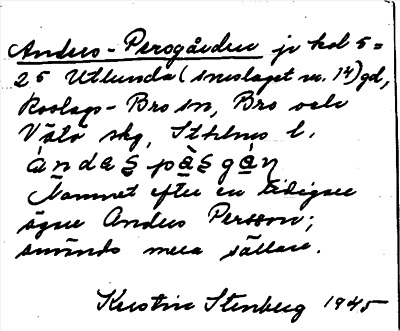 Anders-Persgården jr kol 5=
25 Utlunda (inslaget nr. 14) gd,
Roslags-Bro sn, Bro och
Vätö skg, Sthlms l.
àndas pàsgán
Namnet efter en tidigare
ägare Anders Persson;
används mera sällan.
Kerstin Stenberg 1945